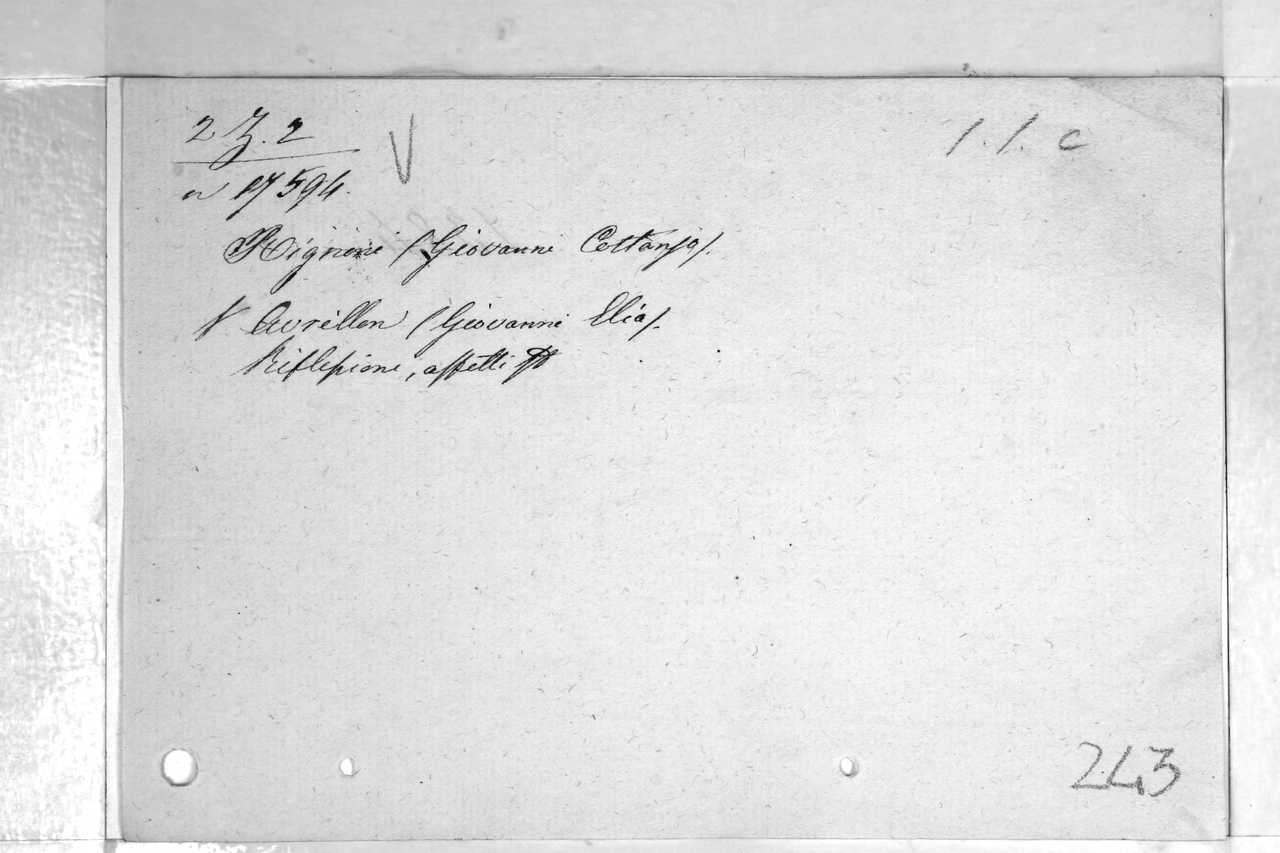 2 Z. 2
V
1. 1. c
n 17594.
Rignoni /Giovanni Costanzo/.
V Avrillon /Giovanni Elia/.
Riflessioni, affetti
243